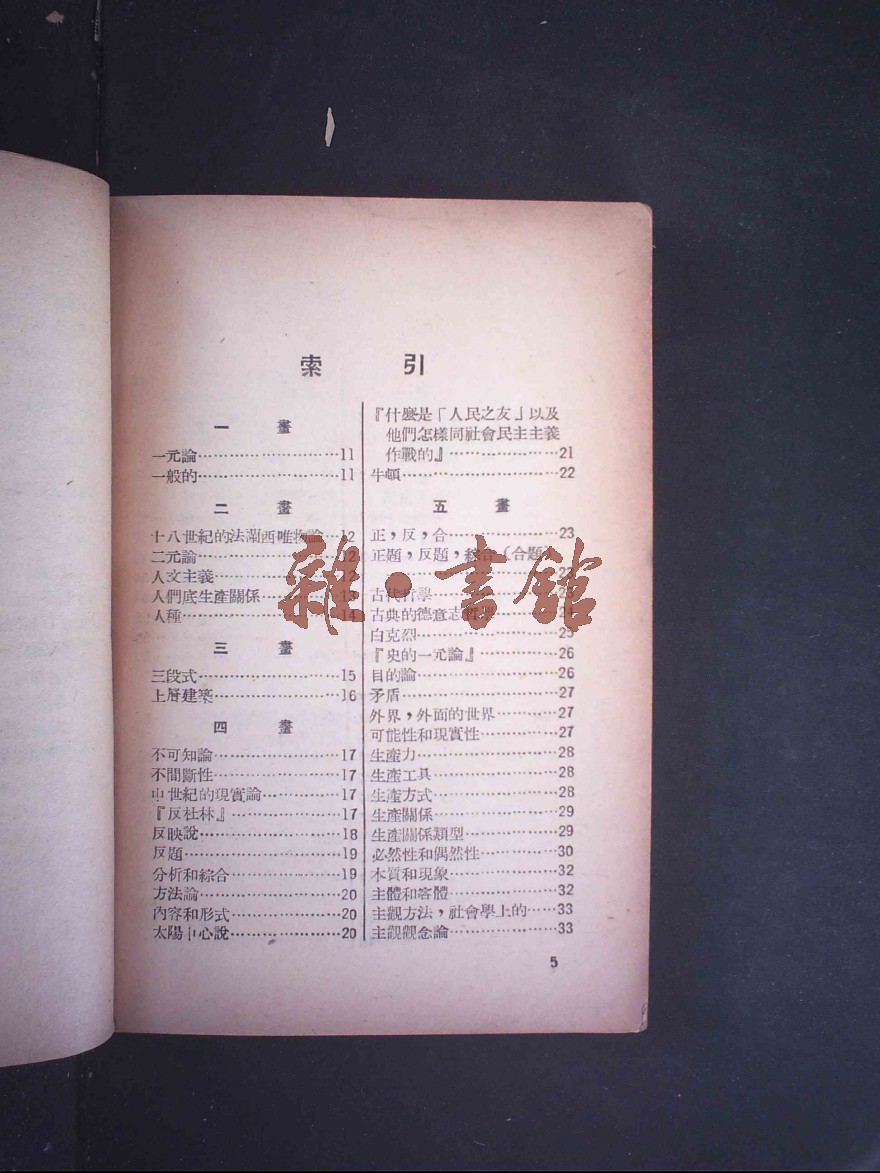 索引
一畫
一元論……………………11
一般的……………………11
二畫
十八世紀的法蘭西唯物論…12
二元論……………………12
人文主義…………………12
人們底生產關係…………13
人種………………………14
三畫
三段式……………………15
上層建築…………………16
四畫
不可知論…………………17
不間斷性…………………17
中世紀的現實論…………17
『反杜林』………………17
反映說……………………18
反題………………………19
分析和綜合………………19
方法論……………………20
內容和形式………………20
太陽中心說………………20
『什麼是「人民之友」以及
他們怎樣同社會民主主義
作戰的』…………………21
牛頓………………………22
五畫
正，反，合………………23
正題，反題，綜合（合題）
……23
古代哲學…………………
古典的德意志哲學………
白克烈……………………25
『史的一元論』…………26
目的論……………………26
矛盾………………………27
外界，外面的世界………27
可能性和現實性…………27
生產力……………………28
生產工具…………………28
生產方式…………………28
生產關係…………………29
生產關係類型……………29
必然性和偶然性…………30
本質和現象………………32
主體和客體………………32
主觀方法，社會學上的……33
主觀觀念論………………33
5
雜·書館